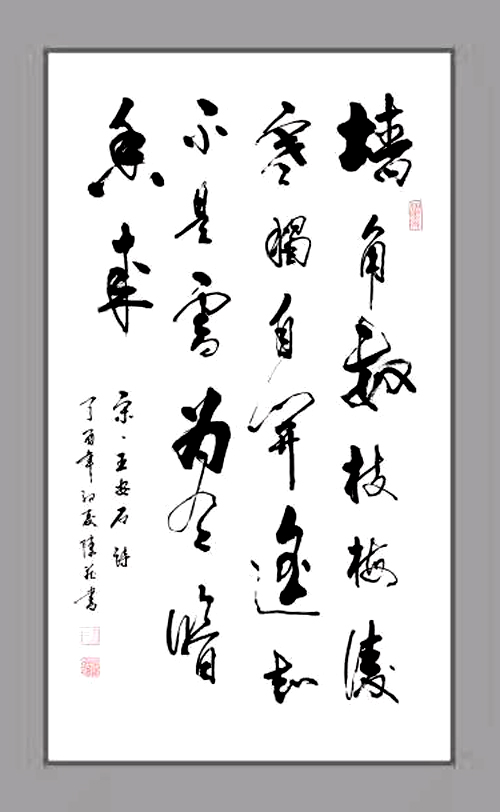 墙角数枝梅凌
寒獨自開遥知
不是雪为有暗
香来
宋、王安石詩
丁酉年初夏陳書